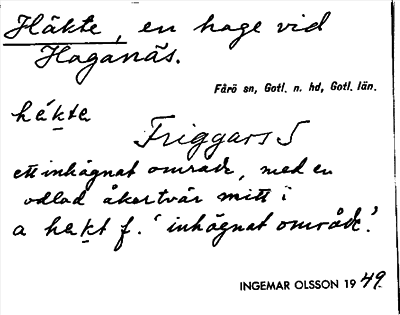 Häkte, en hage vid
Haganäs.
Fårö sn, Gotl. n. hd, Gotl. län.
hékta
Friggars S
ett inhägnat område, med en
odlad åkertvär mitt i
a hekt f. 'inhägnat område'.
INGEMAR OLSSON 1949